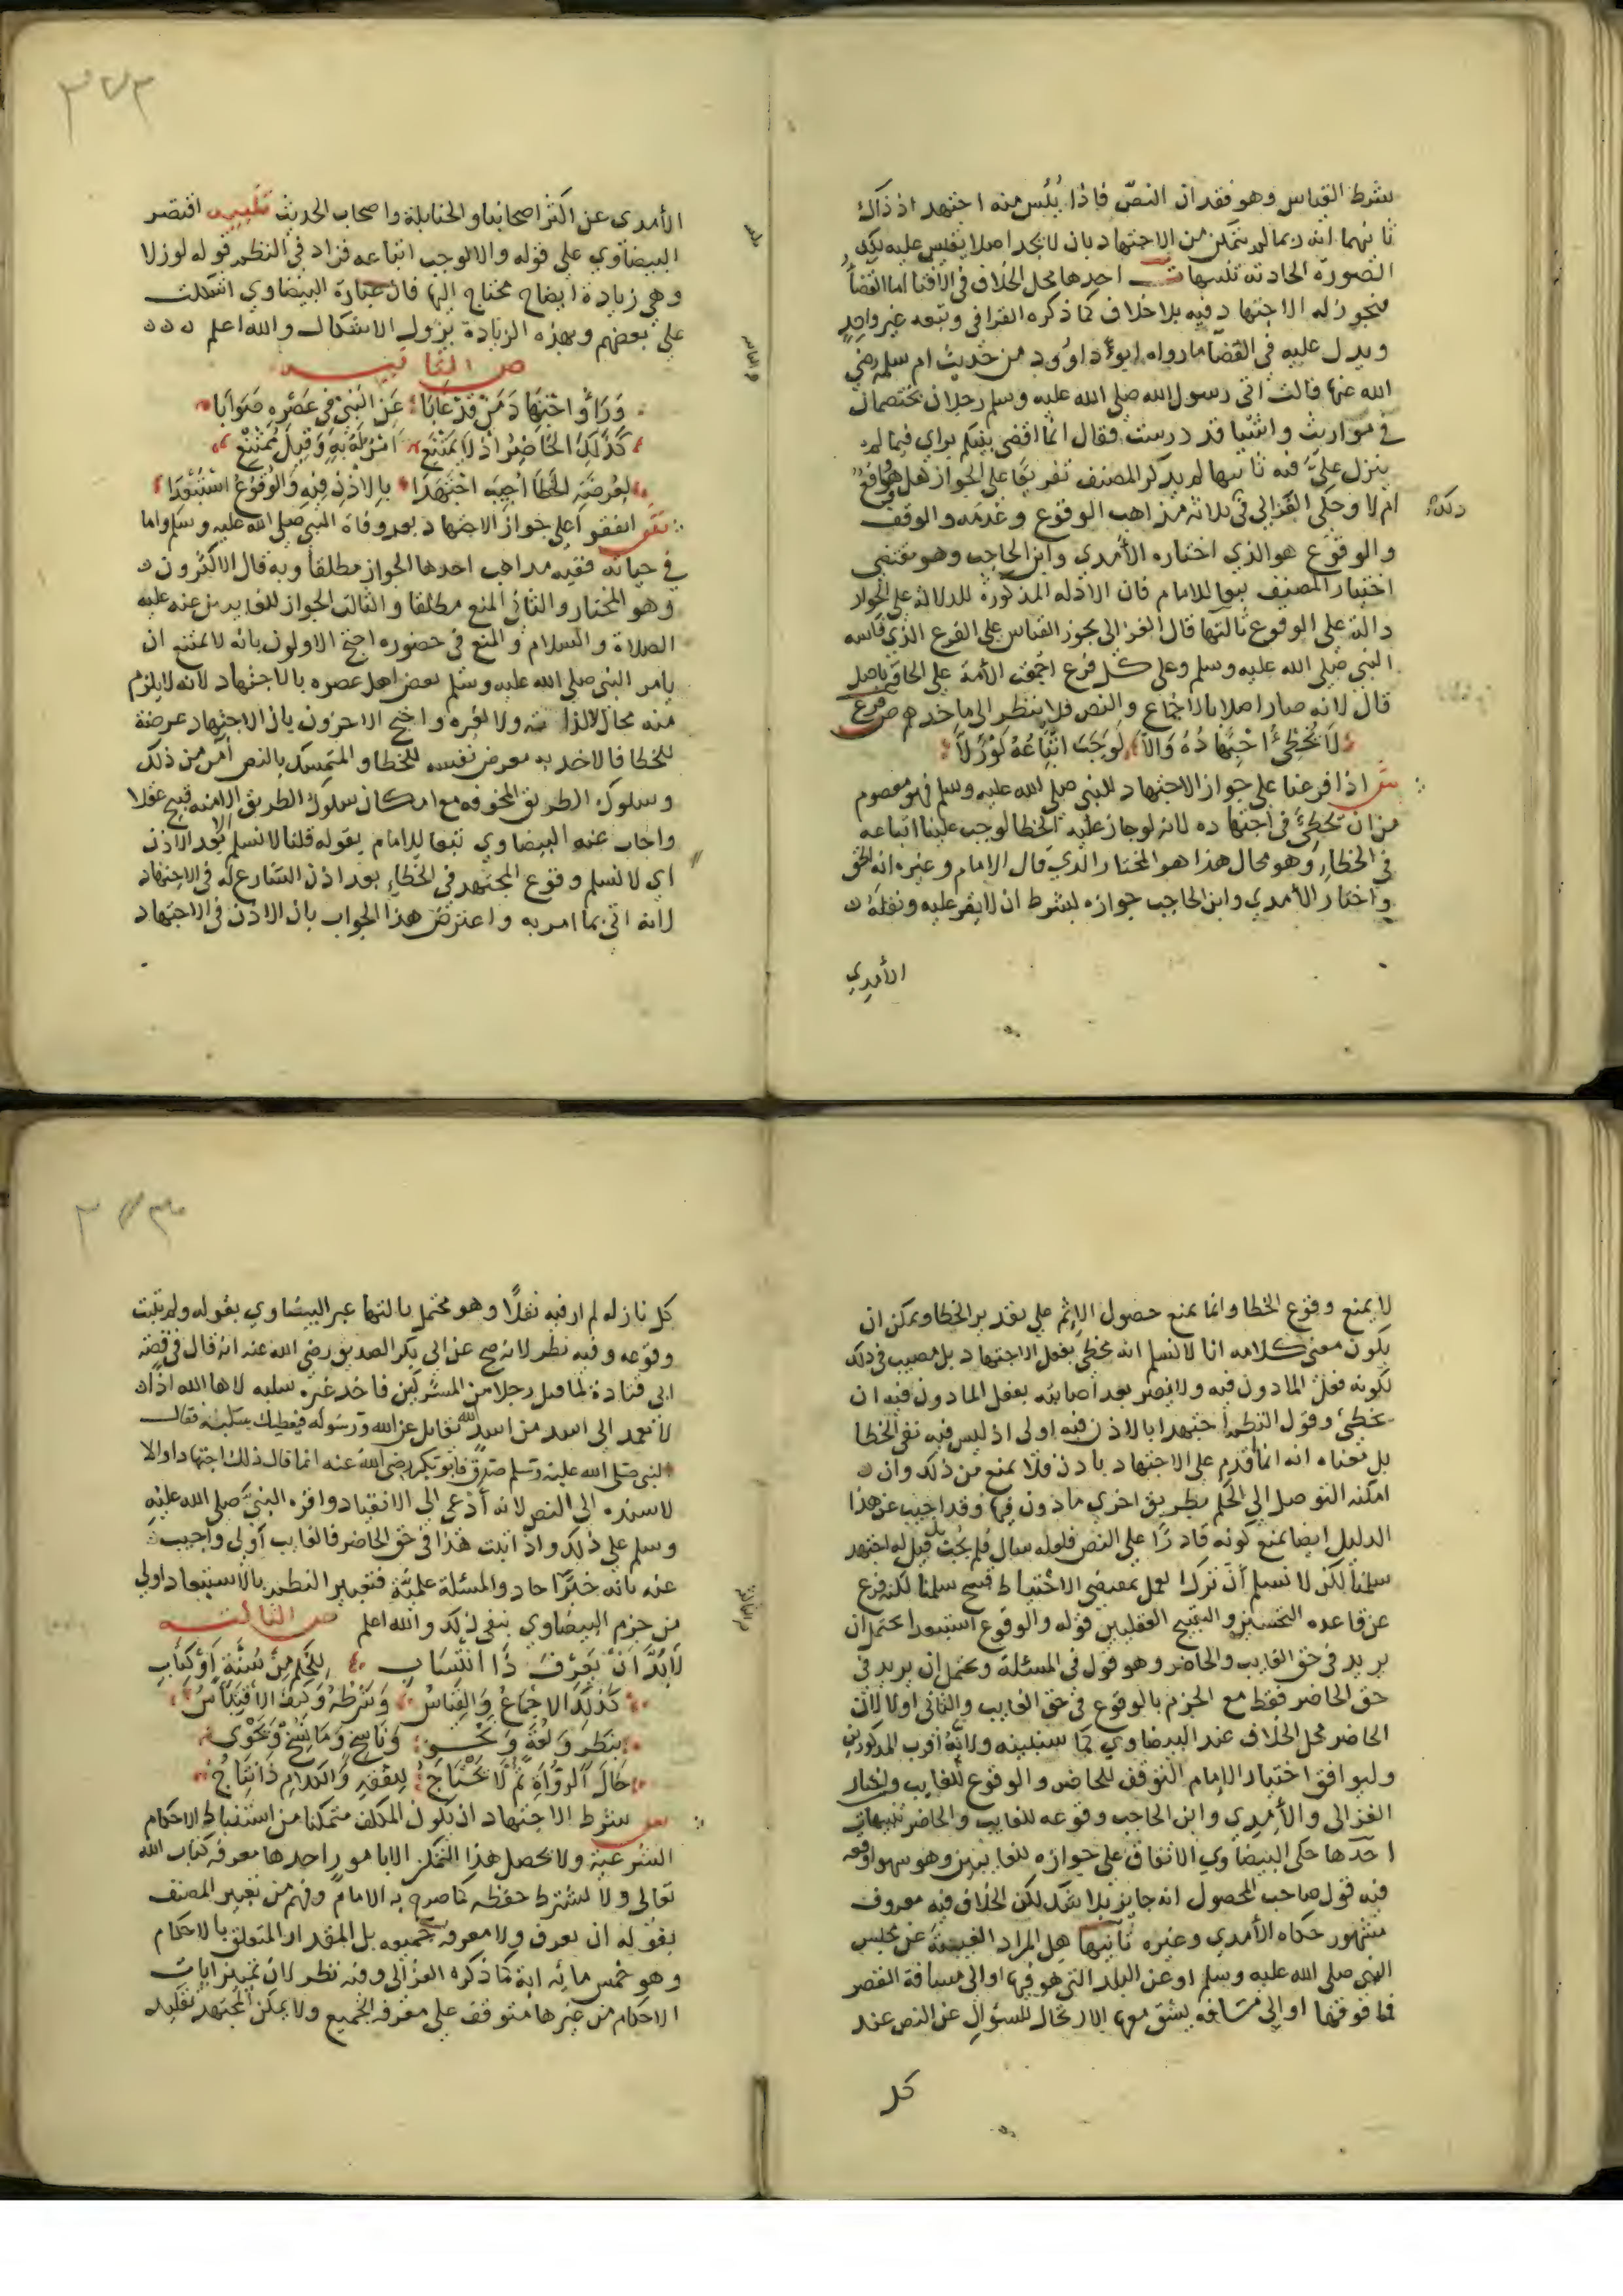 شرط القياس وهو فقدان النص فاذا يئس منه اجتهد اذ ذاك
ثانيهما انه ربما لم يتمكن من الاجتهاد بان لا يجد اصلا يقيس عليه تلك
الصورة الحادثة تنبيهات احدها محل الخلاف في الافتا اما القضا
فيجوز له الاجتهاد فيه بلا خلاف كما ذكره القرافي وتبعه غير واحد
ويدل عليه في القضا ما رواه ابو داود من حديث ام سلمة رضي
الله عنها قالت اتى رسول الله صلى الله عليه وسلم رجلان يختصمان
في مواريث واشيا قد درست فقال انما اقضي بينكم براي فيما لم
ينزل علي فيه ثانيها لم يذكر المصنف تفريعا على الجواز هل هو واقع
ام لا وحكى الغزالي في ثلاثة مذاهب الوقوع وعدمه والوقف
والوقوع هو الذي اختاره الآمدي وابن الحاجب وهو مقتضى
اختيار المصنف تبعا للامام فان الادلة المذكورة للدلالة على الجواز
دالة على الوقوع ثالثها قال الغزالي يجوز القياس على الفرع الذي قاسه
النبي صلى الله عليه وسلم وعلى كل فرع اجمعت الأمة على الحاقه باصل
قال لانه صار اصلا بالاجماع والنص فلا ينظر الى ماخذهم ص فرع
لا يخطئ اجتهاده والا لوجب اتباعه لو زلا
ش اذا فرعنا على جواز الاجتهاد للنبي صلى الله عليه وسلم فهو معصوم
من ان يخطئ في اجتهاده لانه لو جاز عليه الخطا لوجب علينا اتباعه
في الخطاء وهو محال هذا هو المختار الذي قال الامام وغيره انه الحق
واختار الآمدي وابن الحاجب جوازه بشرط ان لا يقر عليه ونقله
الآمدي
٣٧٣
الآمدي عن اكثر اصحابنا والحنابلة واصحاب الحديث تنبيه اقتصر
البيضاوي على قوله والا لوجب اتباعه فزاد في النظم قوله لو زلا
وهي زيادة ايضاح محتاج اليها فان عبارة البيضاوي اشكلت
على بعضهم وبهذه الزيادة يزول الاشكال والله اعلم
ص الثانيه
وراوا اجتهاد من قد غابا عن النبي في عصره صوابا
كذلك الحاضر اذ لا يمتنع امر له به وقيل يمتنع
لعرضة الخطا اجيب اجتهدا بالاذن فيه والوقوع استبعدا
ش اتفقوا على جواز الاجتهاد بعد وفاة النبي صلى الله عليه وسلم واما
في حياته ففيه مذاهب احدها الجواز مطلقا وبه قال الاكثرون
وهو المختار والثاني المنع مطلقا والثالث الجواز للغايبين عنه عليه
الصلاة والسلام والمنع في حضوره احتج الاولون بانه لا يمتنع ان
يامر النبي صلى الله عليه وسلم بعض اهل عصره بالاجتهاد لانه لا يلزم
منه محال لا لذاته ولا لغيره واحتج الاخرون بان الاجتهاد عرضة
للخطا فالاخذ به معرض نفسه للخطا والمتمسك بالنص آمن من ذلك
وسلوك الطريق المخوفه مع امكان سلوك الطريق الامنه قبيح عقلا
واجاب عنه البيضاوي تبعا للامام بقوله قلنا لا نسلم بعد الاذن
اي لا نسلم وقوع المجتهد في الخطاء بعد اذن الشارع له في الاجتهاد
لانه اتى بما امر به واعترض هذا الجواب بان الاذن في الاجتهاد
لا يمنع وقوع الخطا وانما يمنع حصول الاثم على تقدير الخطا ويمكن ان
يكون معنى كلامه انا لا نسلم انه يخطي بفعل الاجتهاد بل مصيب في ذلك
لكونه فعل الماذون فيه ولا يضر بعد اصابته بفعل الماذون فيه ان
يخطئ وقول النظم اجتهدا بالاذن فيه اولى اذ ليس فيه نفي الخطا
بل معناه انه انما اقدم على الاجتهاد باذن فلا يمنع من ذلك وان
امكنه التوصل الى الحكم بطريق اخرى ماذون فيها وقد اجيب عن هذا
الدليل ايضا بمنع كونه قادرا على النص فلعله سال فلم يجب بل قيل له اجتهد
سلمنا لكن لا نسلم أن ترك العمل بمقتضى الاحتياط قبيح سلمنا لكنه فرع
عن قاعده التحسين والتقبيح العقليين قوله والوقوع استبعدا يحتمل ان
يريد في حق الغايب والحاضر وهو قول في المسئلة ويحتمل ان يريد في
حق الحاضر فقط مع الجزم بالوقوع في حق الغايب والثاني اولا لان
الحاضر محل الخلاف عند البيضاوي كما سنبينه ولانه اقرب المذكورين
وليوافق اختيار الامام التوقف للحاضر والوقوع للغايب واختار
الغزالي والآمدي وابن الحاجب وقوعه للغايب والحاضر تنبيهات
احدها حكى البيضاوي الاتفاق على جوازه للغايبين وهو سهو اوقعه
فيه قول صاحب المحصول انه جايز بلا شك لكن الخلاف فيه معروف
مشهور حكاه الآمدي وغيره ثانيها هل المراد الغيبة عن مجلس
النبي صلى الله عليه وسلم او عن البلد التي هو فيها او الى مسافة القصر
فما فوقها او الى مسافة يشق معها الارتحال للسؤال عن النص عند
كل
كل نازله لم ار فيه نقلا وهو محتمل ثالثها عبر البيضاوي بقوله ولم يثبت
وقوعه وفيه نظر لانه صح عن ابي بكر الصديق رضي الله عنه انه قال في قصة
ابي قتادة لما قتل رجلا من المشركين فاخذ غيره سلبه لاها الله اذا
لا نعمد الى اسد من اسد الله تقاتل عن الله ورسوله فيعطيك سلبه فقال
النبي صلى الله عليه وسلم صدق فابو بكر رضي الله عنه انما قال ذلك اجتهادا والا
لاسنده الى النص لانه أدعى الى الانقياد واقره النبي صلى الله عليه
وسلم على ذلك واذا ثبت هذا في حق الحاضر فالغايب أولى واجيب
عنه بانه خبر آحاد والمسئلة علمية فتعبير النظم بالاستبعاد اولى
من جزم البيضاوي بنفي ذلك والله اعلم ص الثالثه
لا بد ان يعرف ذا انتساب للحكم من سنة او كتاب
كذلك الاجماع والقياس وشرطه وكيف الاقتباس
بنظر ولغة ونحو وناسخ وما نسخ ونحوى
حال الرواة ثم لا يحتاج للفقه والكلام ذا نتاج
ش شرط الاجتهاد ان يكون المكلف متمكنا من استنباط الاحكام
الشرعية ولا يحصل هذا التمكن الا بامور احدها معرفة كتاب الله
تعالى ولا يشترط حفظه كما صرح به الامام وفهم من تعبير المصنف
بقوله ان يعرف ولا معرفة جميعه بل المقدار المتعلق بالاحكام
وهو خمس مائه اية كما ذكره الغزالي وفيه نظر لان تمييز ايات
الاحكام من غيرها متوقف على معرفة الجميع ولا يمكن المجتهد تقليد